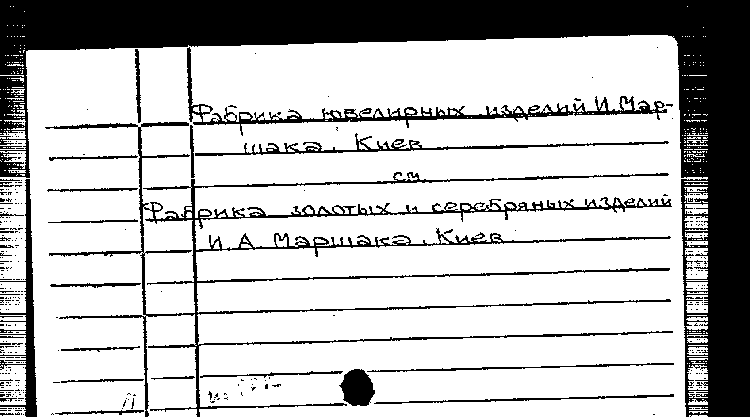 Фабрика ювелирных изделий И. Мар-
шака. Киев
см.
Фабрика золотых и серебряных изделий
И. А. Маршака. Киев